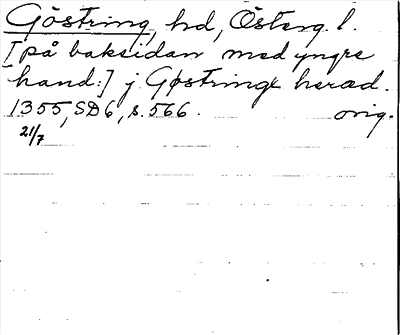 Göstring, hd, Österg. l.
[på baksidan med yngre
hand:] j Gøstringx heræd.
1355, SD 6, s. 566. orig.
21/7